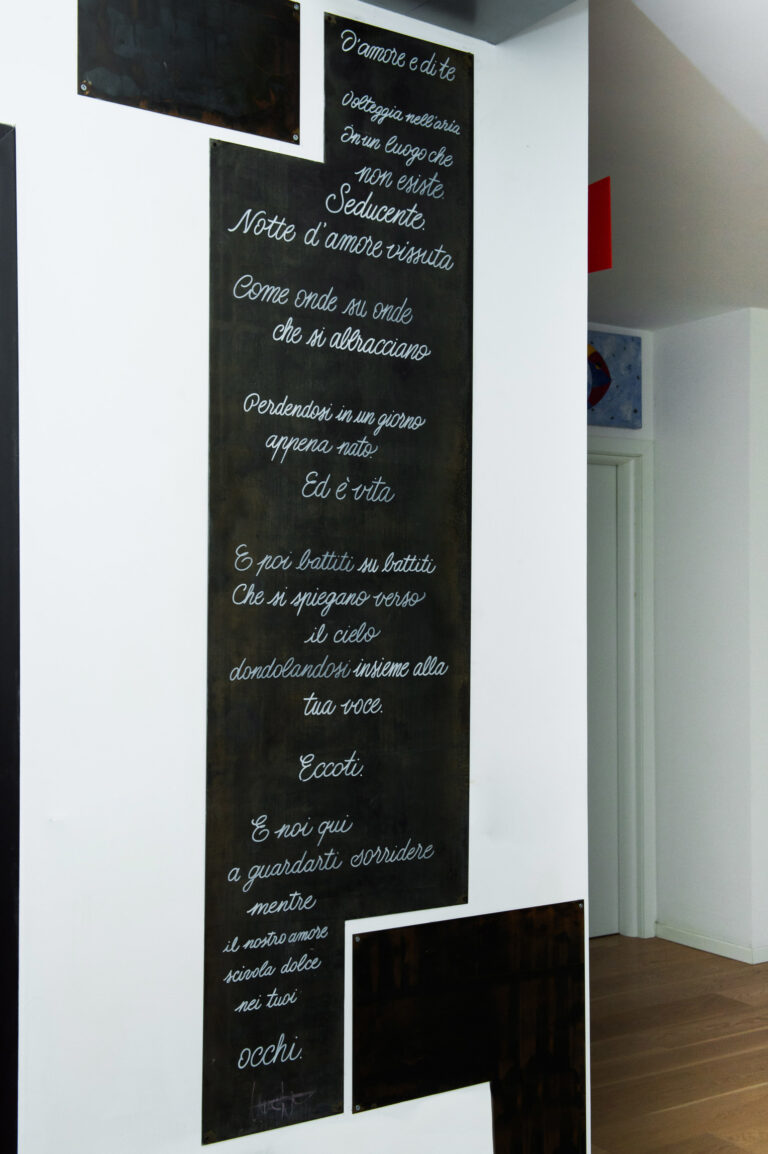 D'amore e di te
Volteggia nell'aria
In un luogo che
non esiste.
Seducente.
Notte d'amore vissuta
Come onde su onde
che si abbracciano
Perdendosi in un giorno
appena nato.
Ed è vita
E poi battiti su battiti
Che si spiegano verso
il cielo
dondolandosi insieme alla
tua voce.
Eccoti.
E noi qui
a guardarti sorridere
mentre
il nostro amore
scivola dolce
nei tuoi
occhi.